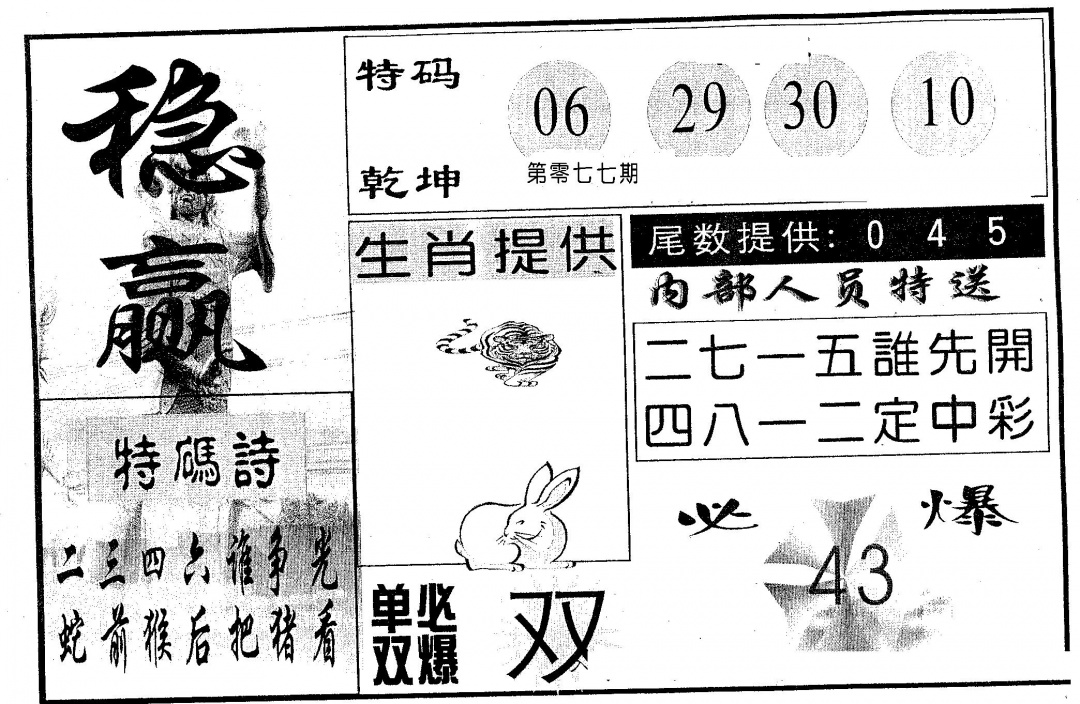 稳
赢
特码
乾坤
06 29 30 10
第零七七期
生肖提供
尾数提供: 0 4 5
内部人员特送
二七一五誰先開
四八一二定中彩
特碼詩
二三四六谁争光
蛇前猴后把猪看
单双
必爆
双
必爆
43